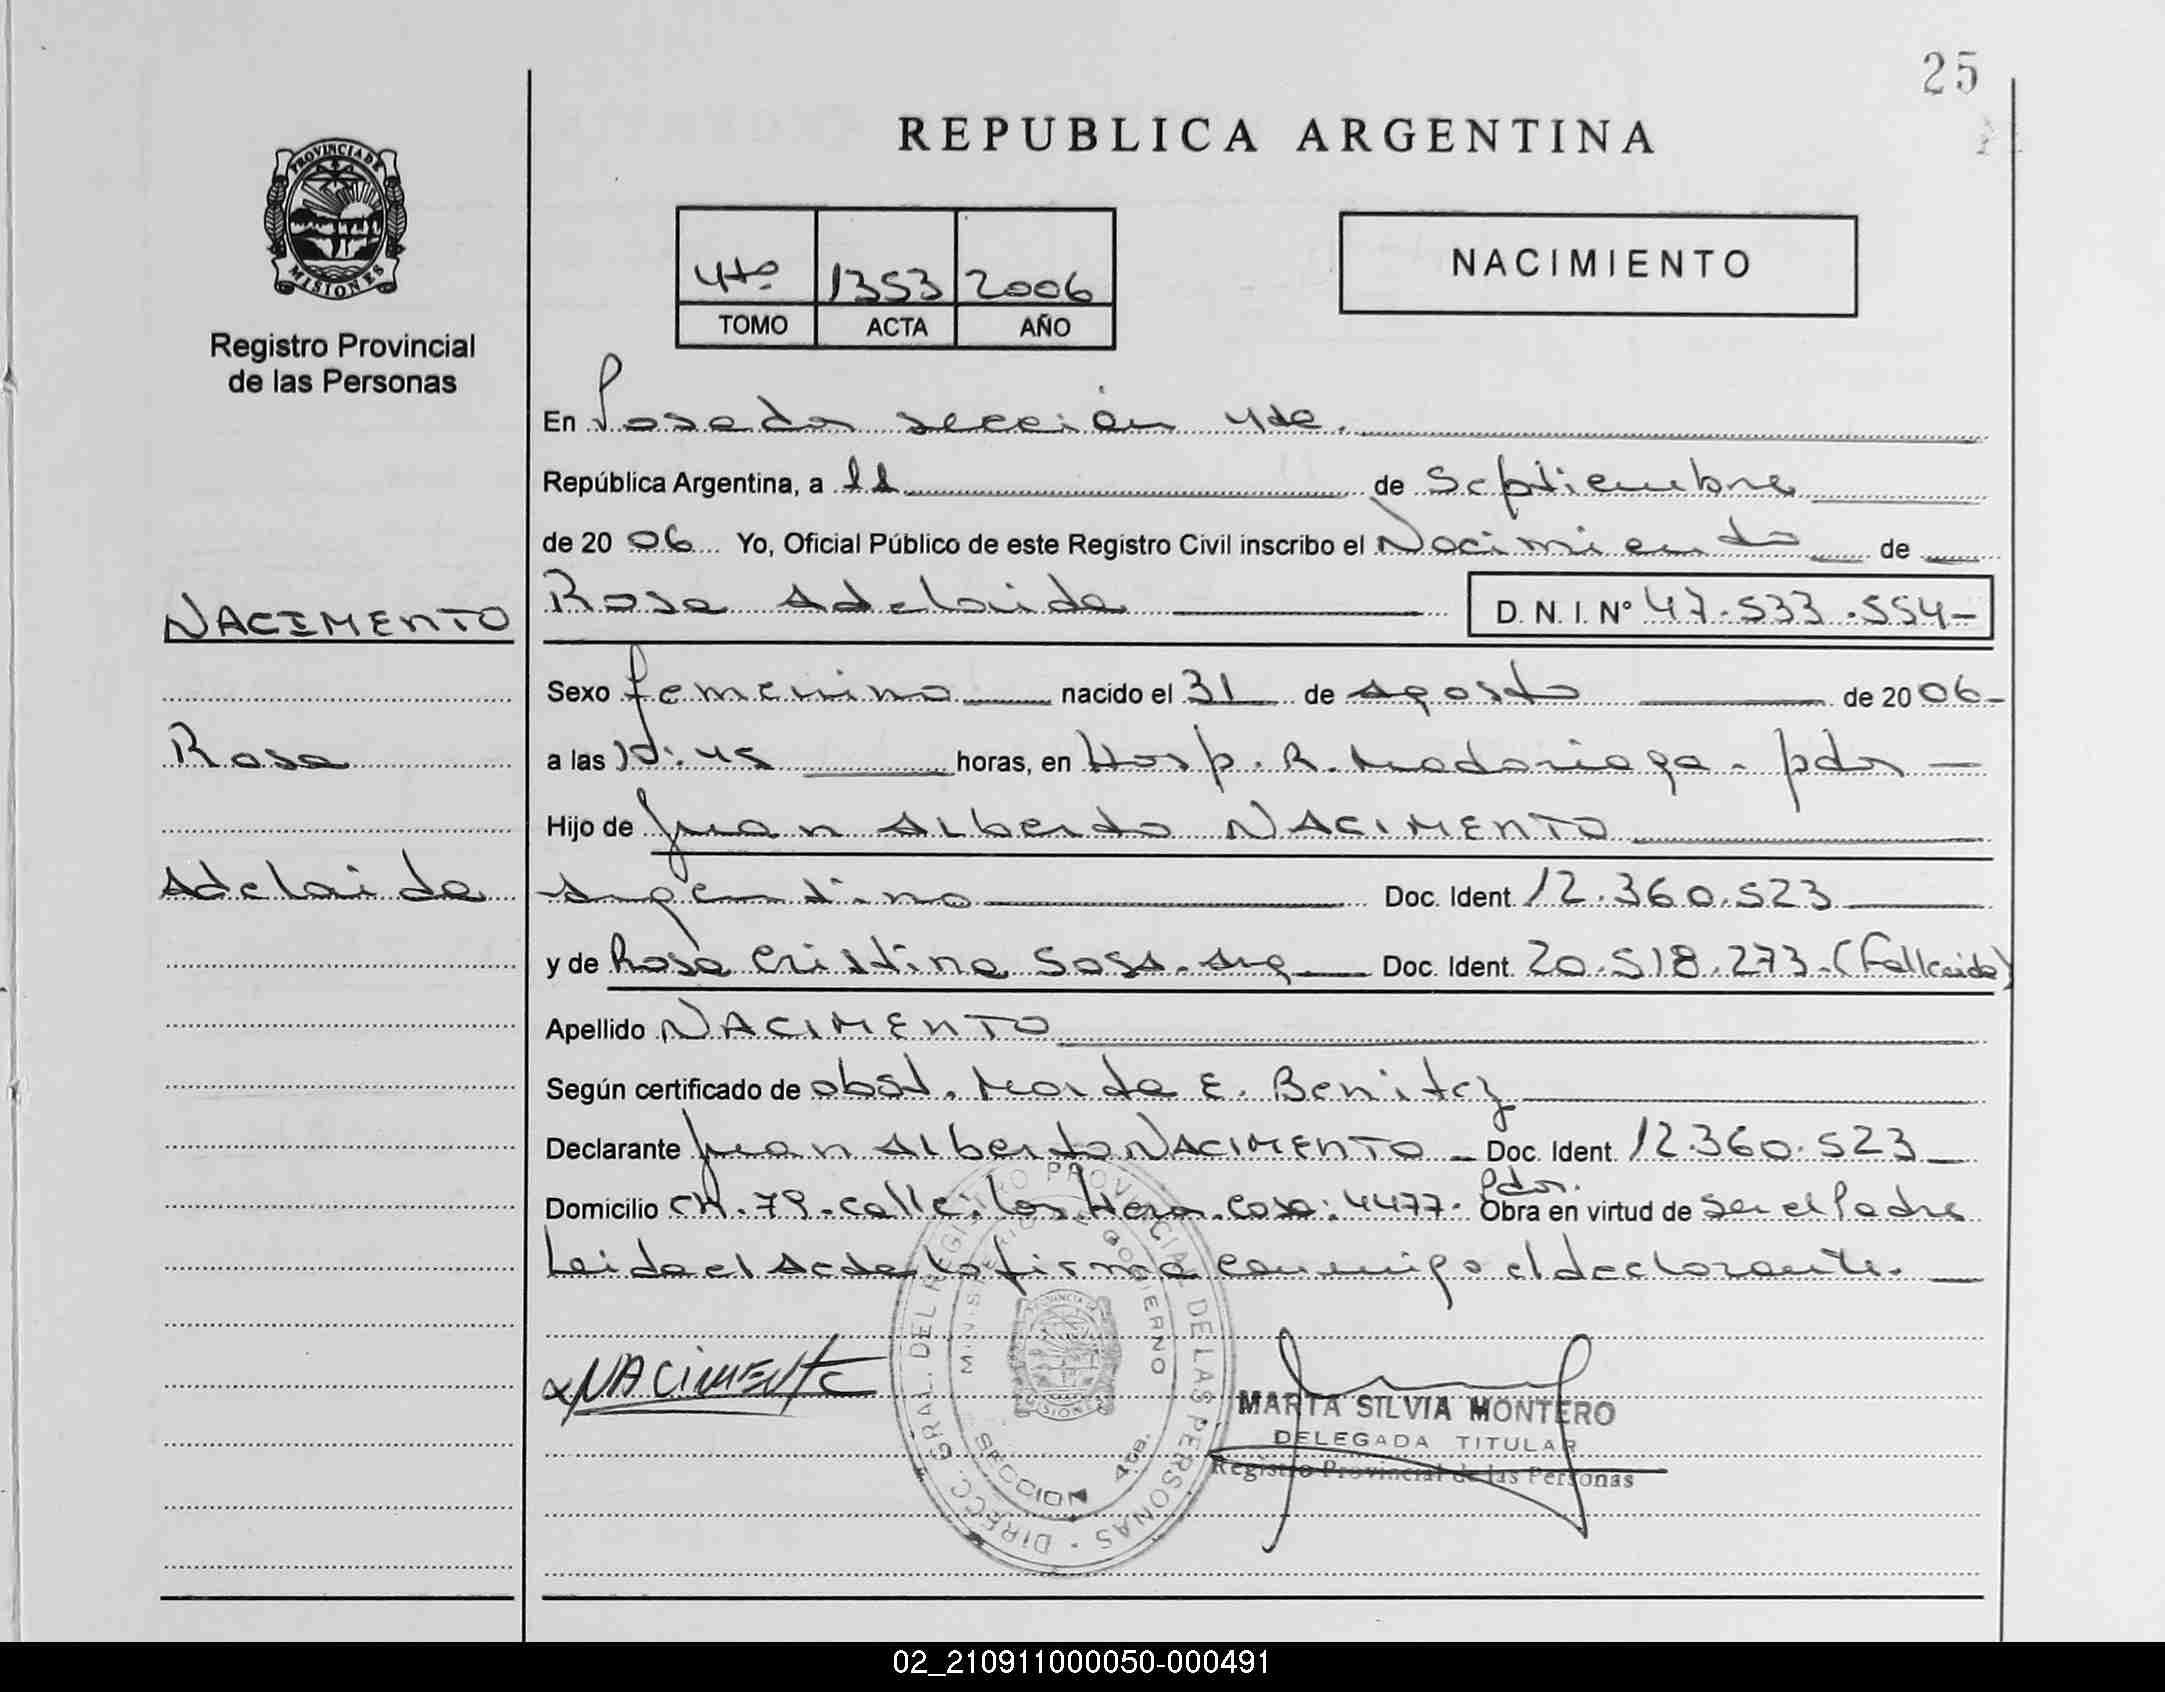 25
REPUBLICA ARGENTINA
PROVINCIA DE
MISIONES
Registro Provincial
de las Personas
4to 1353 2006
TOMO ACTA AÑO
NACIMIENTO
En Posadas sección 4ta.
República Argentina, a 11 de Septiembre
de 2006 Yo, Oficial Público de este Registro Civil inscribo el Nacimiento de
NACIMENTO
Rosa Adelaida D. N. I. N° 47.533.554-
Sexo femenino nacido el 31 de Agosto de 2006-
Rosa
a las horas, en Hosp. R. Madariaga - pdas
Hijo de Juan Alberto NACIMENTO
Adelaida
Argentino Doc. Ident. 12.360.523
y de Rosa Cristina Sosa. Arg Doc. Ident. 20.518.273-(Fallecida)
Apellido NACIMENTO
Según certificado de obst. Marta E. Benitez
Declarante Juan Alberto NACIMENTO - Doc. Ident. 12.360.523
Domicilio CH. 79-calle: Los casa: 4477- Pdas. Obra en virtud de ser el Padre
Leida el Acta la firma conmigo el declarante.
NACIMENTO
DIRECC. GRAL. DEL REGISTRO PROVINCIAL DE LAS PERSONAS
MINISTERIO DE GOBIERNO
PROVINCIA DE
MISIONES
SECCION 4ta.
MARTA SILVIA MONTERO
DELEGADA TITULAR
Registro Provincial de las Personas
02_210911000050-000491